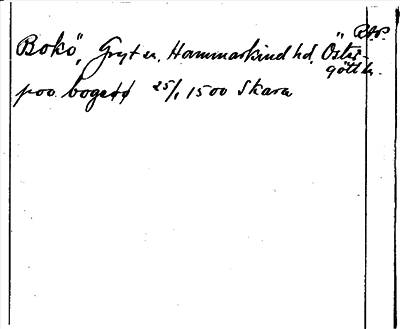 RAP.
Bokö, Gryt sn, Hammarkind hd, Öster-
götl l.
poo bogeöö 25/1 1500 Skara